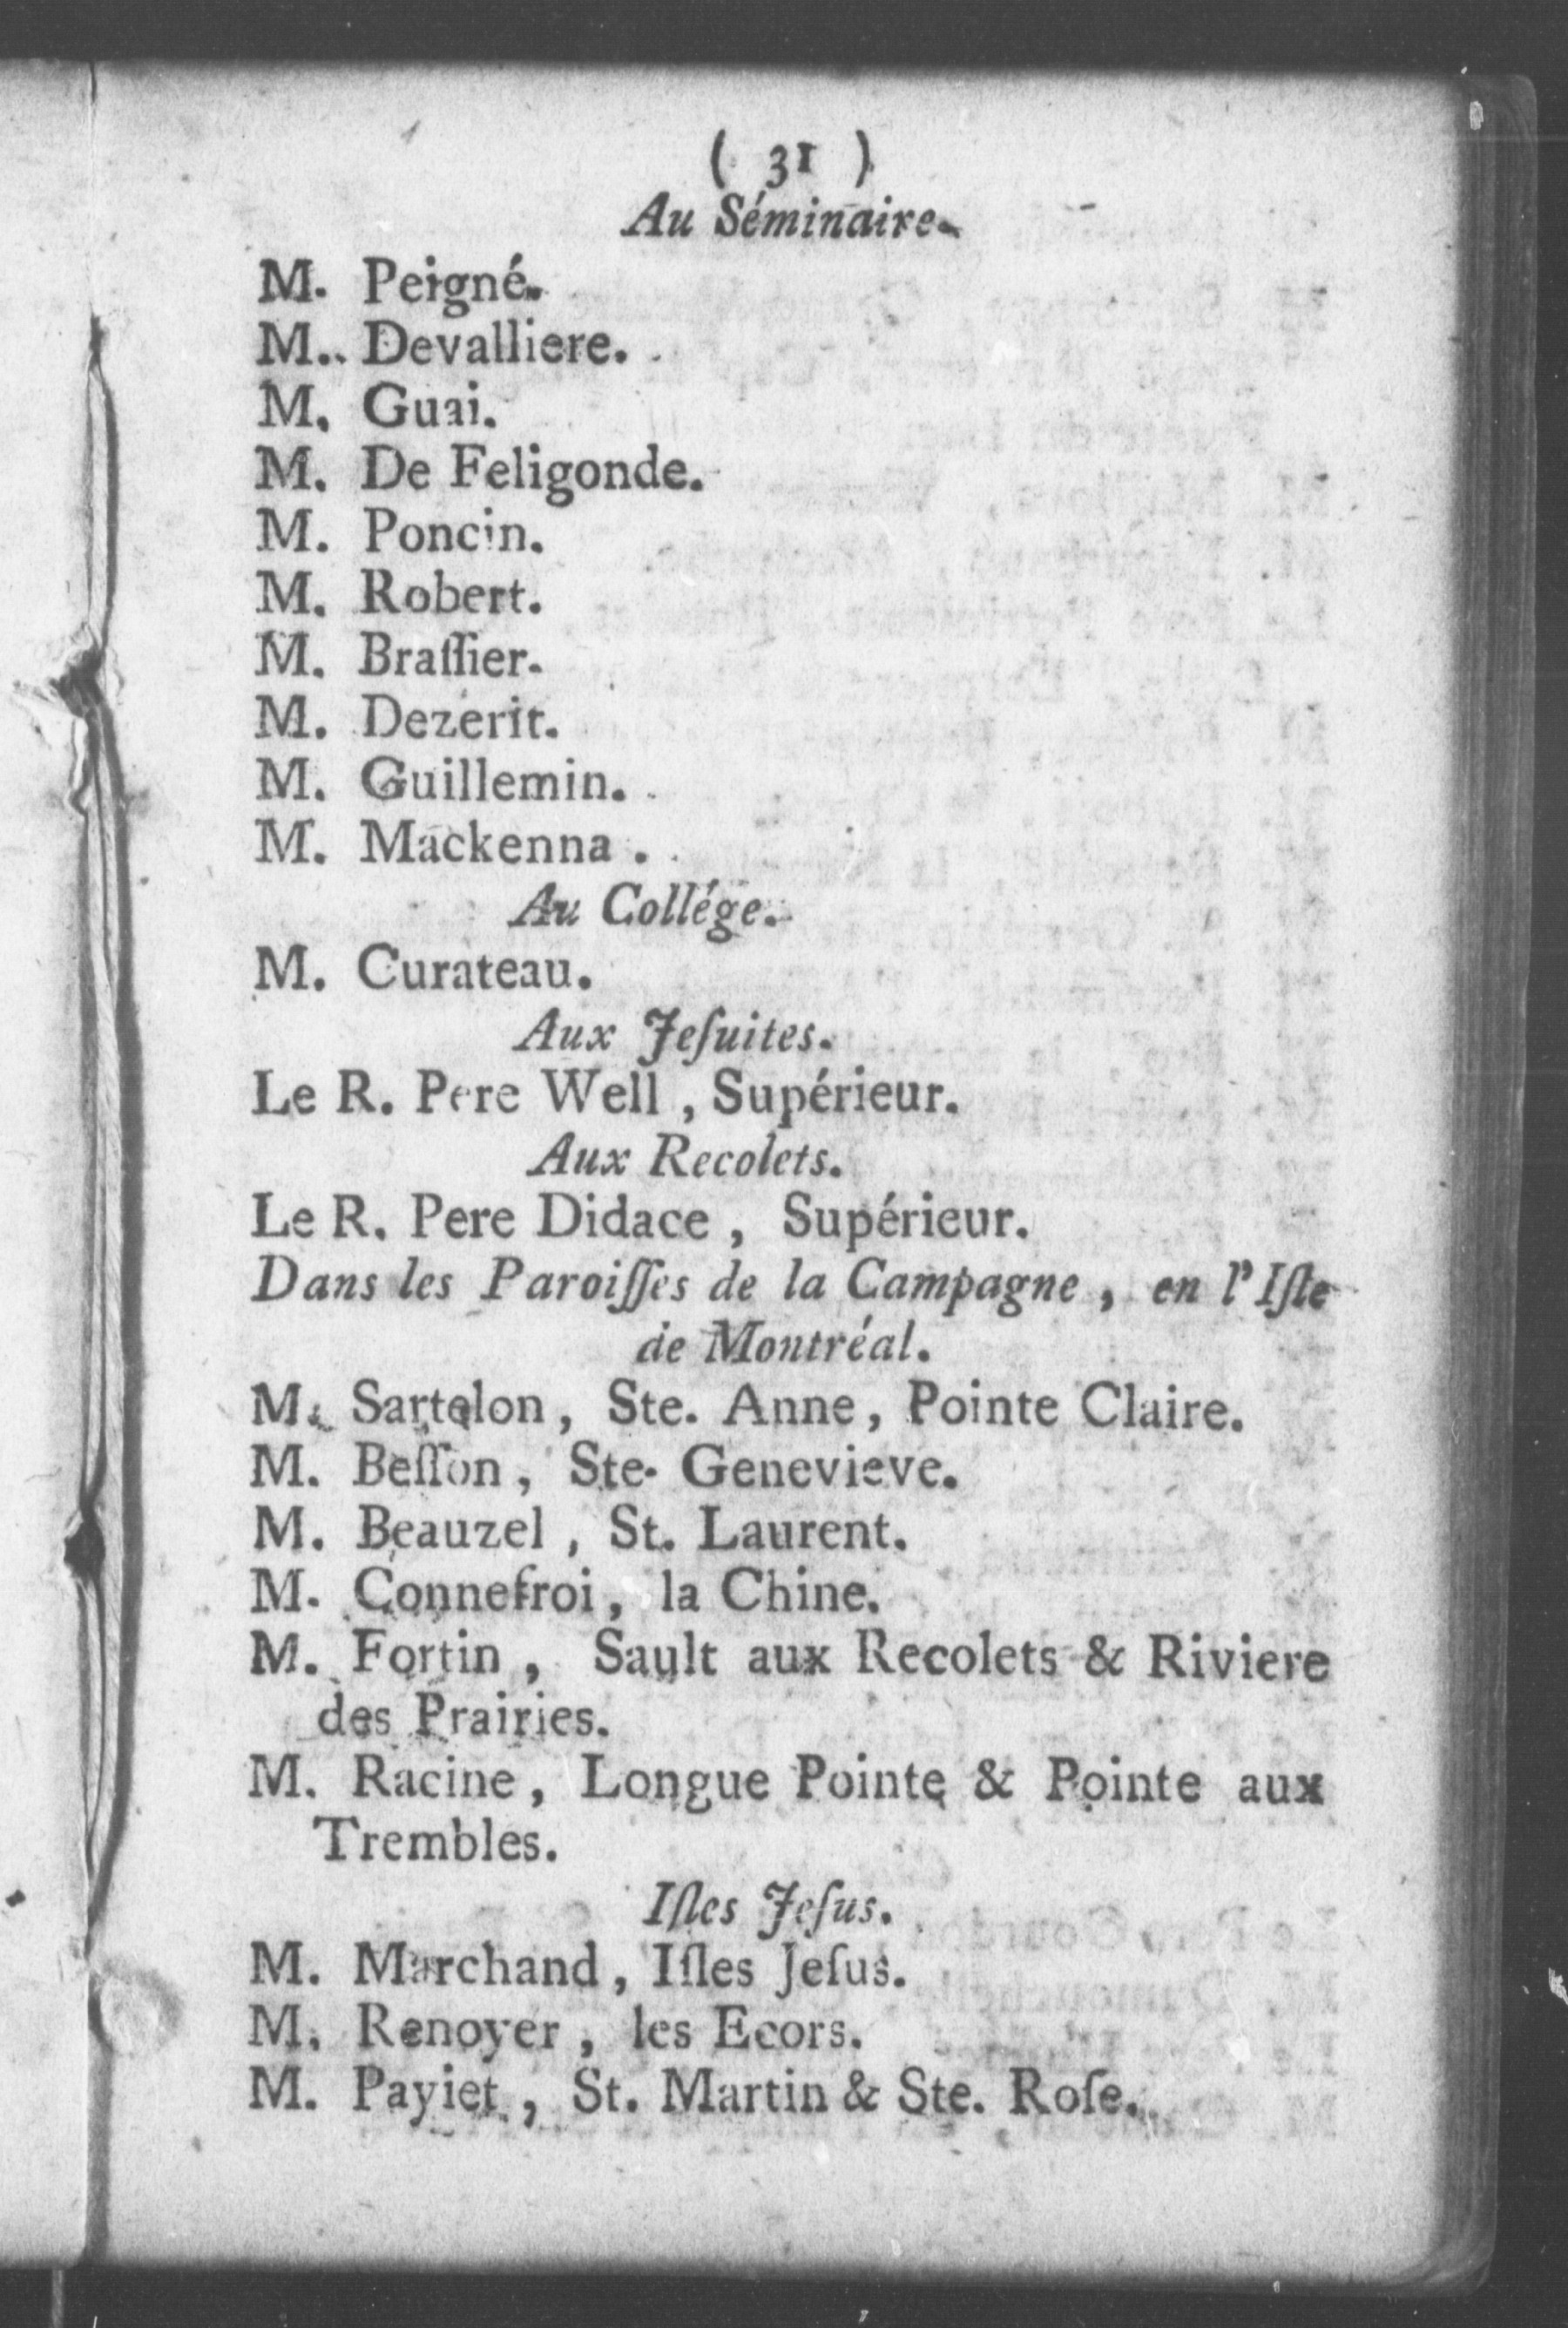 ( 31 )
Au Séminaire.
M. Peigné.
M. Devalliere.
M. Guai.
M. De Feligonde.
M. Poncin.
M. Robert.
M. Braſſier.
M. Dezerit.
M. Guillemin.
M. Mackenna .
Au Collége.
M. Curateau.
Aux Jeſuites.
Le R. Pere Well , Supérieur.
Aux Recolets.
Le R. Pere Didace , Supérieur.
Dans les Paroiſſes de la Campagne , en l'Iſle
de Montréal.
M. Sartelon, Ste. Anne, Pointe Claire.
M. Beſſon, Ste. Genevieve.
M. Beauzel , St. Laurent.
M. Connefroi, la Chine.
M. Fortin , Sault aux Recolets & Riviere
des Prairies.
M. Racine, Longue Pointe & Pointe aux
Trembles.
Iſles Jeſus.
M. Marchand, Iſles Jeſus.
M. Renoyer , les Ecors.
M. Payiet , St. Martin & Ste. Roſe.